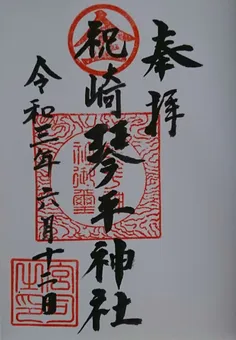 奉拝
祝崎琴平神社
令和三年六月十二日